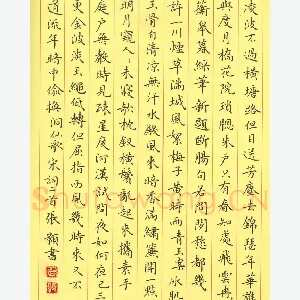 凌波不過橫塘路但目送芳塵去錦瑟年華誰
與度月橋花院瑣窗朱戶只有春知處飛雲冉
蘅皋暮綵筆新題斷腸句若問閒愁都幾
許一川煙草滿城風絮梅子黃時雨青玉案冰肌
玉骨自清涼無汗水殿風來暗香滿繡簾開一點
明月窺人人未寢欹枕釵橫鬢亂起來攜素手
庭戶無聲時見疎星度河漢試問夜如何夜已三
更金波淡玉繩低轉但屈指西風幾時來又不
道流年暗中偷換洞仙歌宋詞二首張顥書